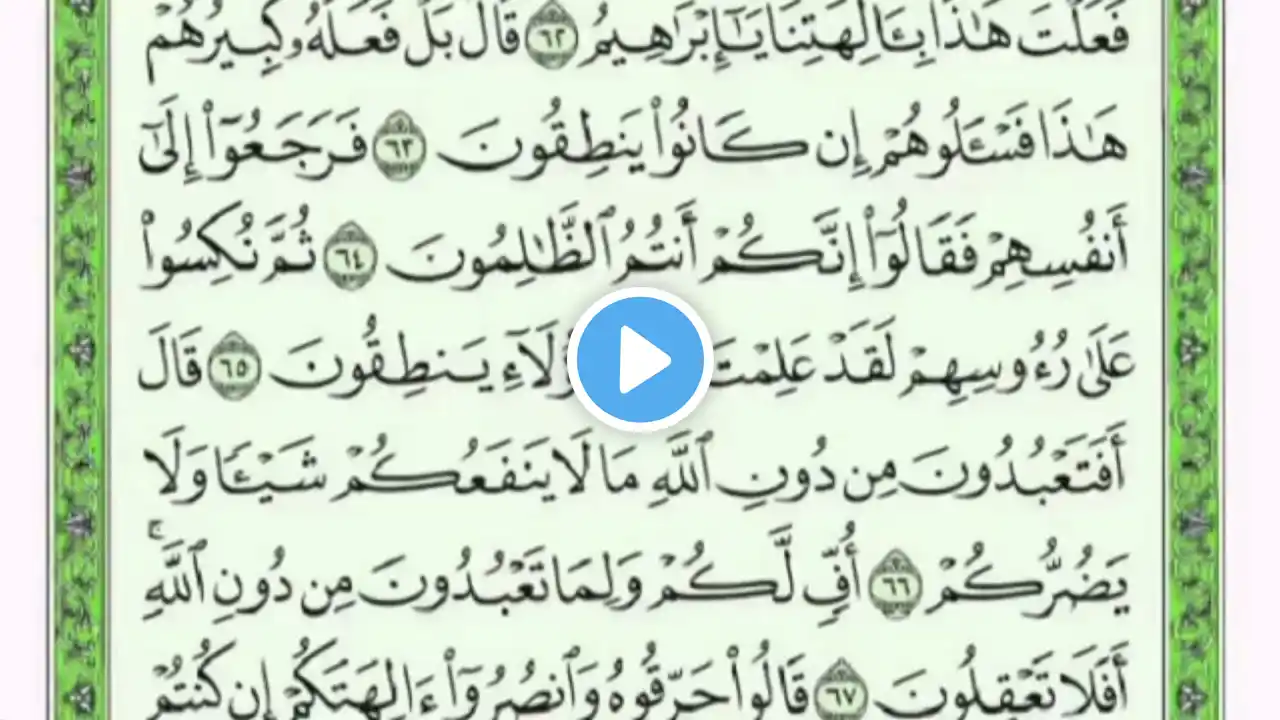 فَعَلْتَ هَٰذَا بِـَٔالِهَتِنَا يَٰٓإِبْرَٰهِيمُ ٦٢ قَالَ بَلْ فَعَلَهُۥ كَبِيرُهُمْ
هَٰذَا فَسْـَٔلُوهُمْ إِن كَانُوا۟ يَنطِقُونَ ٦٣ فَرَجَعُوٓا۟ إِلَىٰٓ
أَنفُسِهِمْ فَقَالُوٓا۟ إِنَّكُمْ أَنتُمُ ٱلظَّٰلِمُونَ ٦٤ ثُمَّ نُكِسُوا۟
عَلَىٰ رُءُوسِهِمْ لَقَدْ عَلِمْتَ يَنطِقُونَ ٦٥ قَالَ
أَفَتَعْبُدُونَ مِن دُونِ ٱللَّهِ مَا لَا يَنفَعُكُمْ شَيْـًٔا وَلَا
يَضُرُّكُمْ ٦٦ أُفٍّ لَّكُمْ وَلِمَا تَعْبُدُونَ مِن دُونِ ٱللَّهِ ۚ
أَفَلَا تَعْقِلُونَ ٦٧ قَالُوا۟ حَرِّقُوهُ وَٱنصُرُوٓا۟ ءَالِهَتَكُمْ إِن كُنتُمْ